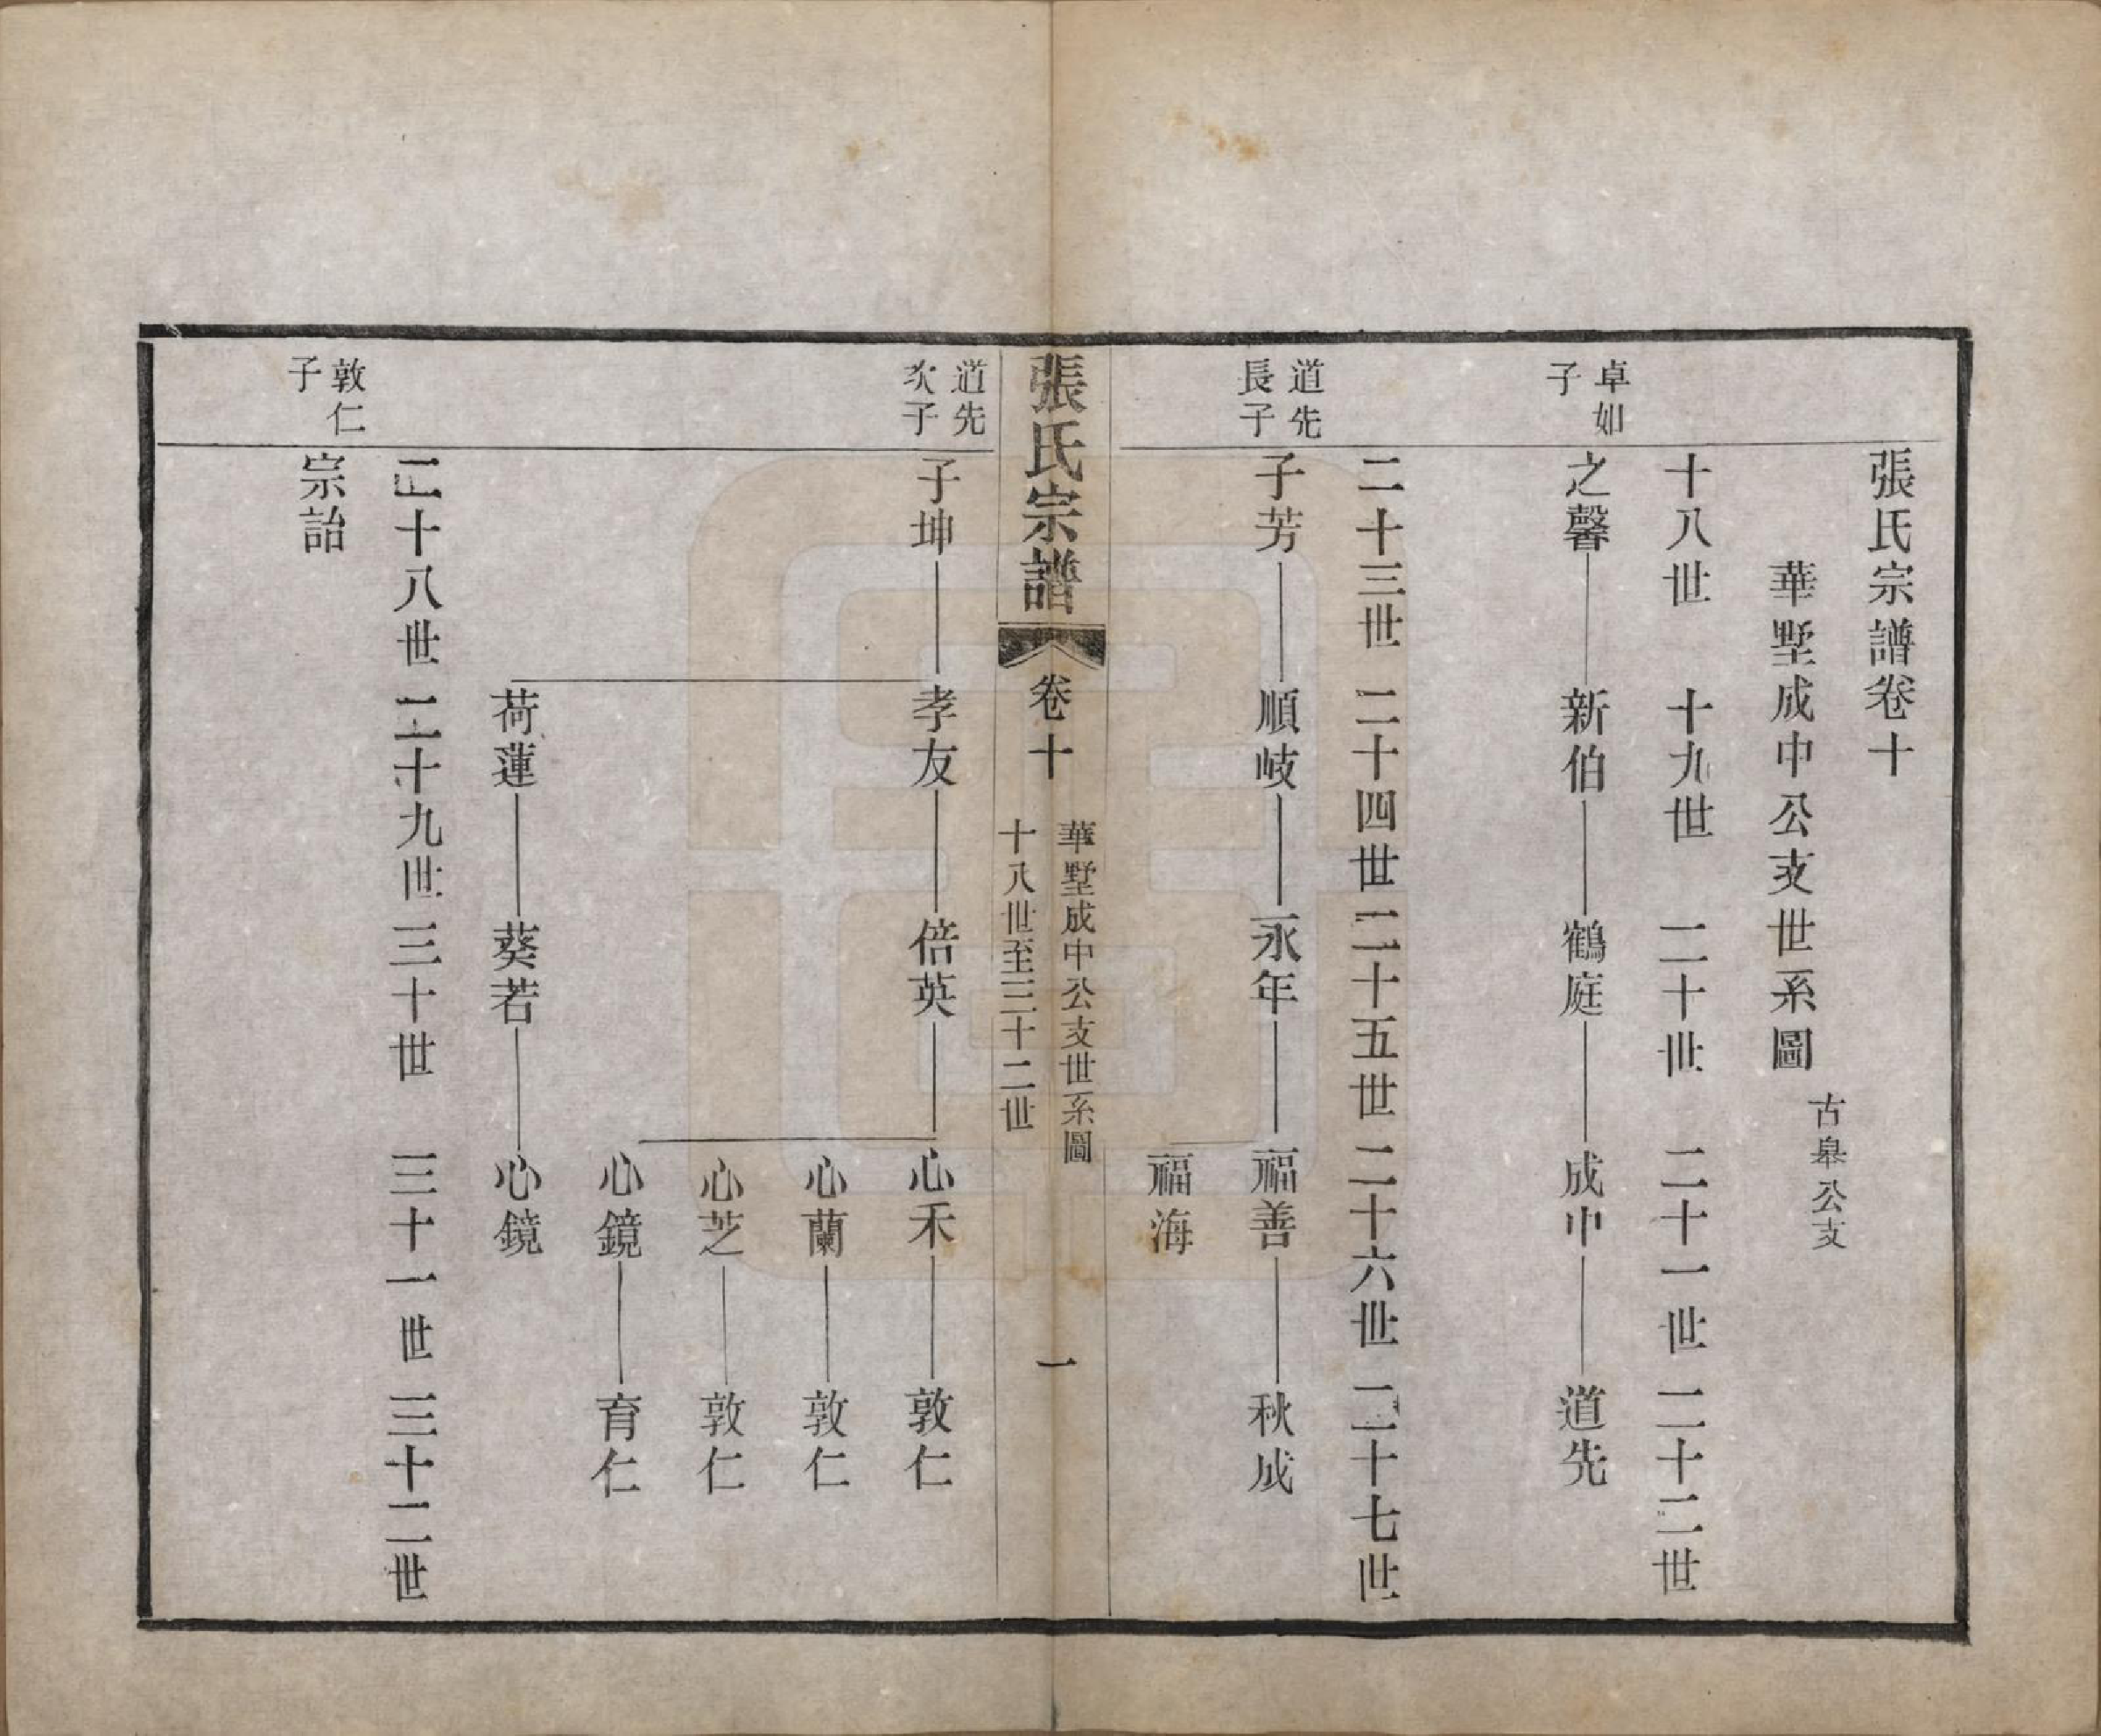 張氏宗譜卷十
華墅成中公支世系圖 古皋公支
十八世 十九世 二十世 二十一世 二十二世
卓如
子
之馨 新伯 鶴庭 成中 道先
二十三世 二十四世 二十五世 二十六世 二十七世
道先
長子
子芳 順岐 永年 福善 秋成
福海
張氏宗譜 卷十 華墅成中公支世系圖
十八世至三十二世 一
道先
次子
子坤 孝友 倍英 心禾 敦仁
心蘭 敦仁
心芝 敦仁
心鏡 育仁
荷蓮 葵若 心鏡
二十八世 二十九世 三十世 三十一世 三十二世
敦仁
子
宗詒